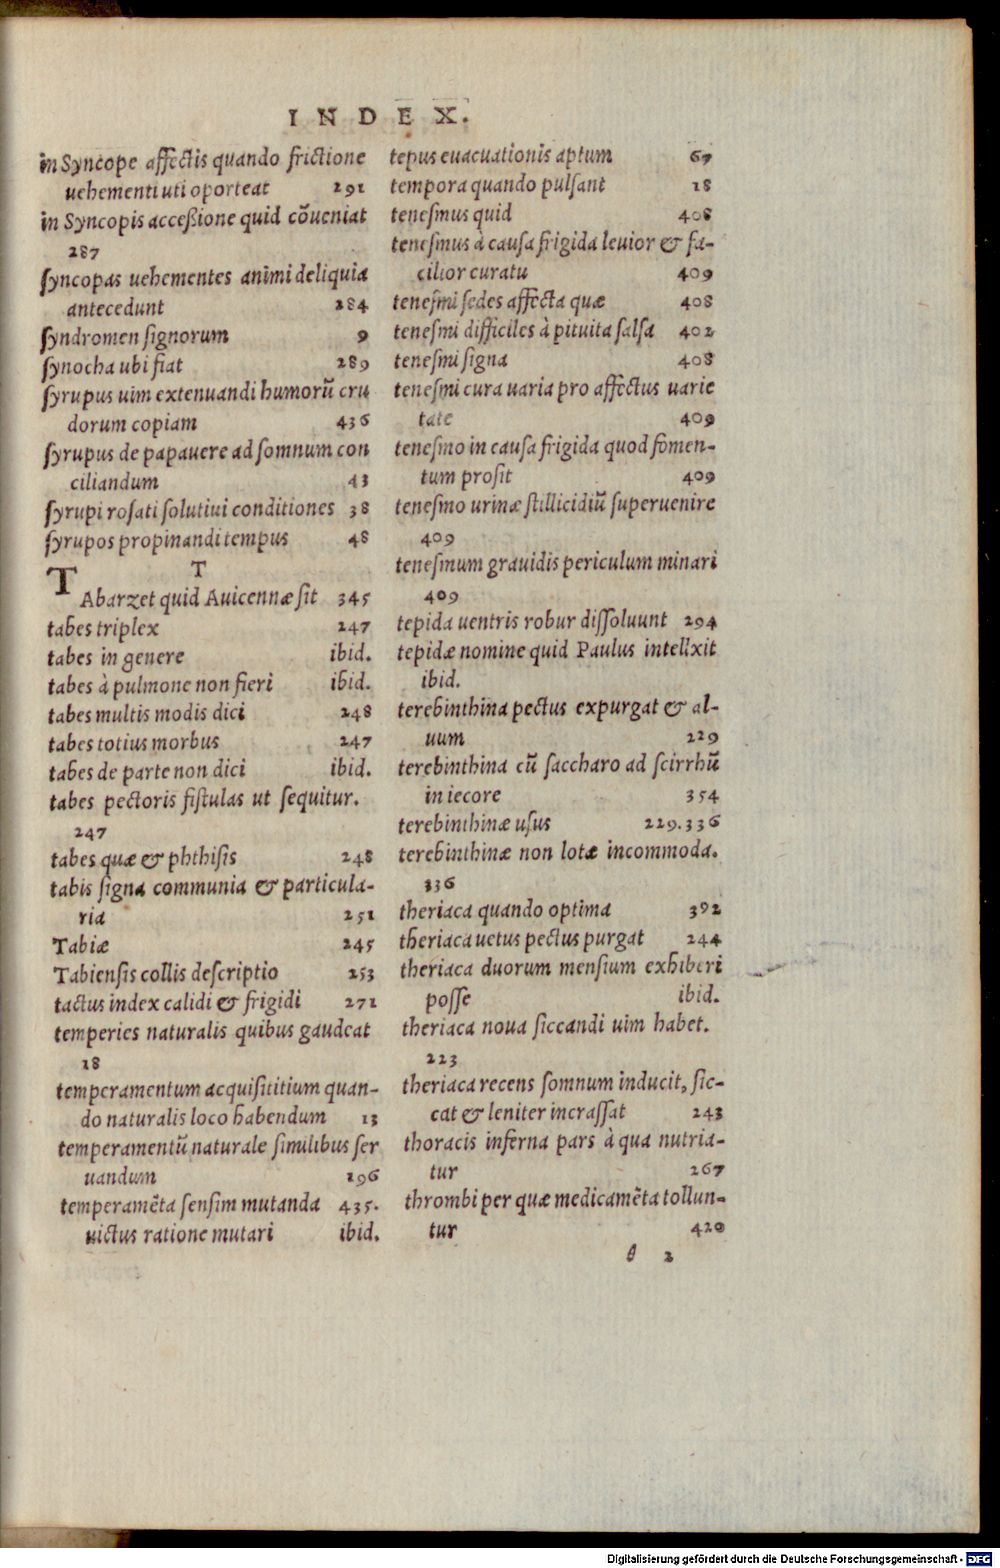 INDEX.
in Syncope affectis quando frictione
uehementi uti oporteat 291
in Syncopis acceßione quid cōueniat
287
syncopas uehementes animi deliquia
antecedunt 284
syndromen signorum 9
synocha ubi fiat 289
syrupus uim extenuandi humorū cru
dorum copiam 436
syrupus de papauere ad somnum con
ciliandum 43
syrupi rosati solutiui conditiones 38
syrupos propinandi tempus 48
T
TAbarzet quid Auicennæ sit 345
tabes triplex 247
tabes in genere ibid.
tabes à pulmone non fieri ibid.
tabes multis modis dici 248
tabes totius morbus 247
tabes de parte non dici ibid.
tabes pectoris fistulas ut sequitur.
247
tabes quæ & phthisis 248
tabis signa communia & particula-
ria 251
Tabiæ 245
Tabiensis collis descriptio 253
tactus index calidi & frigidi 271
temperies naturalis quibus gaudeat
18
temperamentum acquisititium quan-
do naturalis loco habendum 13
temperamentū naturale similibus ser
uandum 296
temperamēta sensim mutanda 435.
uictus ratione mutari ibid.
tepus euacuationis aptum 67
tempora quando pulsant 18
tenesmus quid 408
tenesmus à causa frigida leuior & fa-
cilior curatu 409
tenesmi sedes affecta quæ 408
tenesmi difficiles à pituita salsa 402
tenesmi signa 408
tenesmi cura uaria pro affectus uarie
tate 409
tenesmo in causa frigida quod fomen-
tum prosit 409
tenesmo urinæ stillicidiū superuenire
409
tenesmum grauidis periculum minari
409
tepida uentris robur dissoluunt 294
tepidæ nomine quid Paulus intellxit
ibid.
terebinthina pectus expurgat & al-
uum 229
terebinthina cū saccharo ad scirrhū
in iecore 354
terebinthinæ usus 229.336
terebinthinæ non lotæ incommoda.
336
theriaca quando optima 392
theriaca uetus pectus purgat 244
theriaca duorum mensium exhiberi
posse ibid.
theriaca noua siccandi uim habet.
223
theriaca recens somnum inducit, sic-
cat & leniter incrassat 243
thoracis inferna pars à qua nutria-
tur 267
thrombi per quæ medicamēta tollun-
tur 420
θ 2
Digitalisierung gefördert durch die Deutsche Forschungsgemeinschaft - DFG